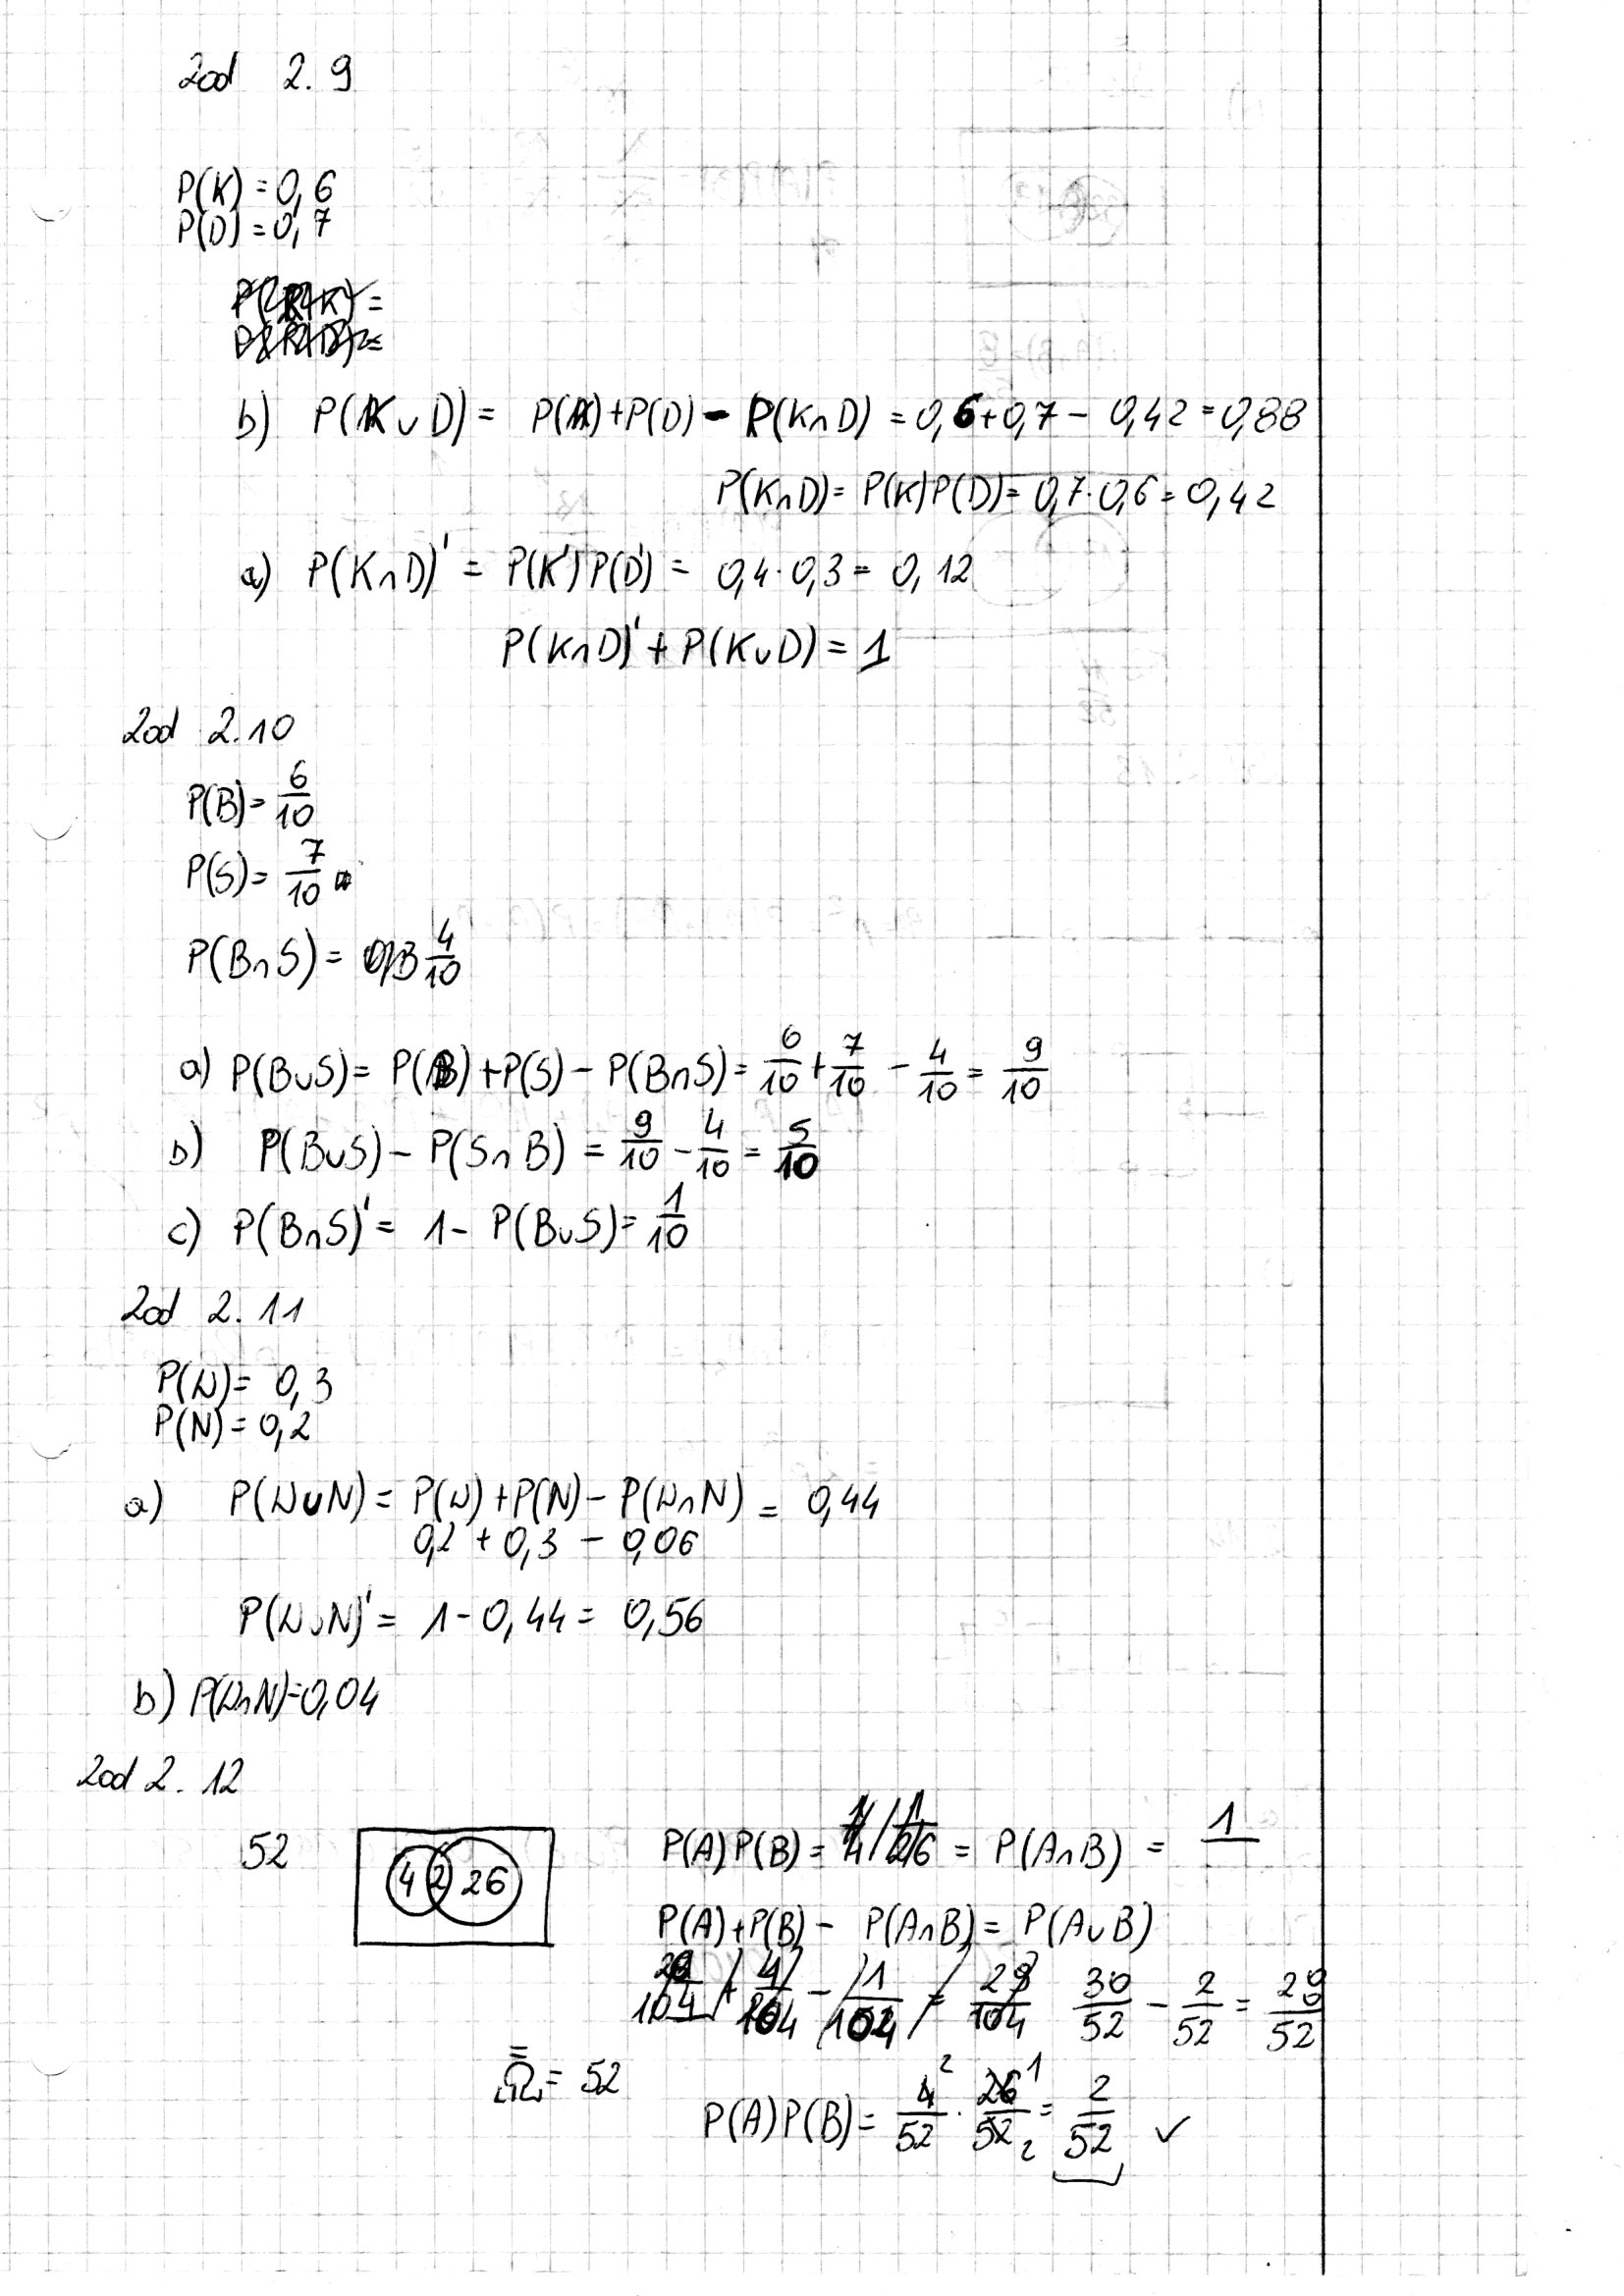 Zad 2.9
P(K) = 0,6
P(D) = 0,7
b) P(K∪D) = P(K)+P(D) - P(K∩D) = 0,6+0,7 - 0,42 = 0,88
P(K∩D) = P(K)P(D) = 0,7·0,6 = 0,42
a) P(K∩D)' = P(K')P(D') = 0,4·0,3 = 0,12
P(K∩D)' + P(K∪D) = 1
Zad 2.10
P(B) = 6/10
P(S) = 7/10
P(B∩S) = 4/10
a) P(B∪S) = P(B)+P(S) - P(B∩S) = 6/10 + 7/10 - 4/10 = 9/10
b) P(B∪S) - P(S∩B) = 9/10 - 4/10 = 5/10
c) P(B∩S)' = 1 - P(B∪S) = 1/10
Zad 2.11
P(W) = 0,3
P(N) = 0,2
a) P(W∪N) = P(W)+P(N) - P(W∩N) = 0,44
0,2 + 0,3 - 0,06
P(W∪N)' = 1 - 0,44 = 0,56
b) P(W∩N) = 0,04
Zad 2.12
52
4 2 26
P(A)P(B) = = P(A∩B) = 1/
P(A)+P(B) - P(A∩B) = P(A∪B)
30/52 - 2/52 = 28/52
Ω = 52
P(A)P(B) = 4/52 · 26/52 = 2/52 ✓